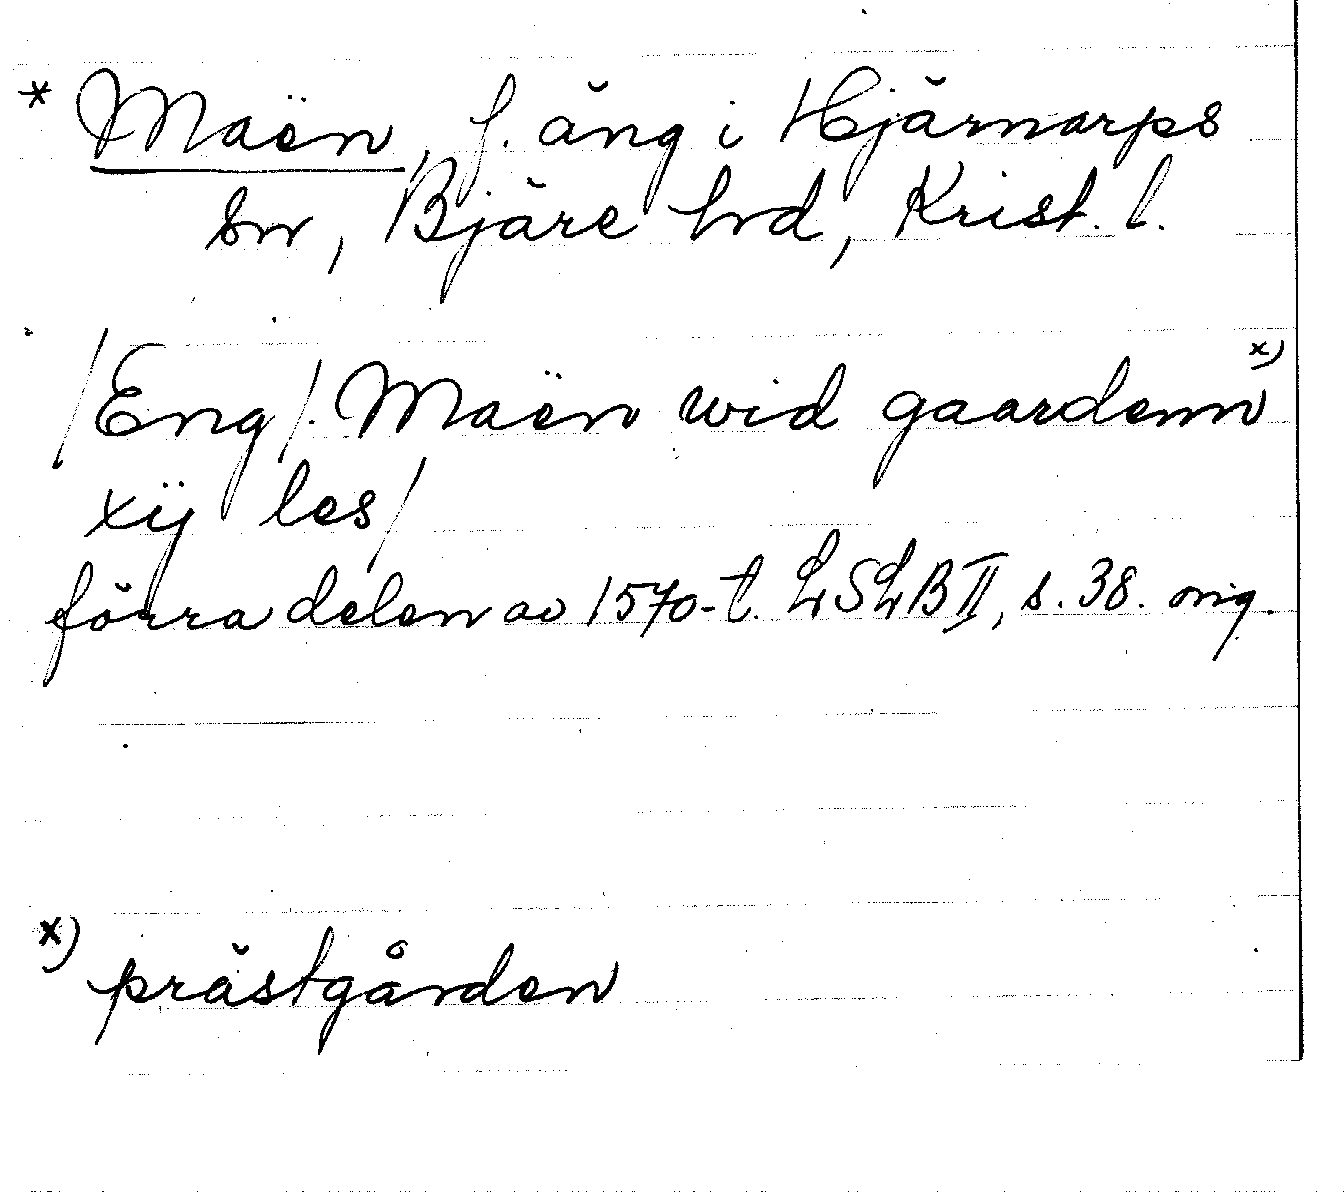 * Maën, f. äng i Hjärnarps
sn, Bjäre hd, Krist. l.
/Eng/. Maën wid gaardenn x)
xÿ les/
förra delen av 1570-t. LSLB II, s. 38. orig.
x) prästgården